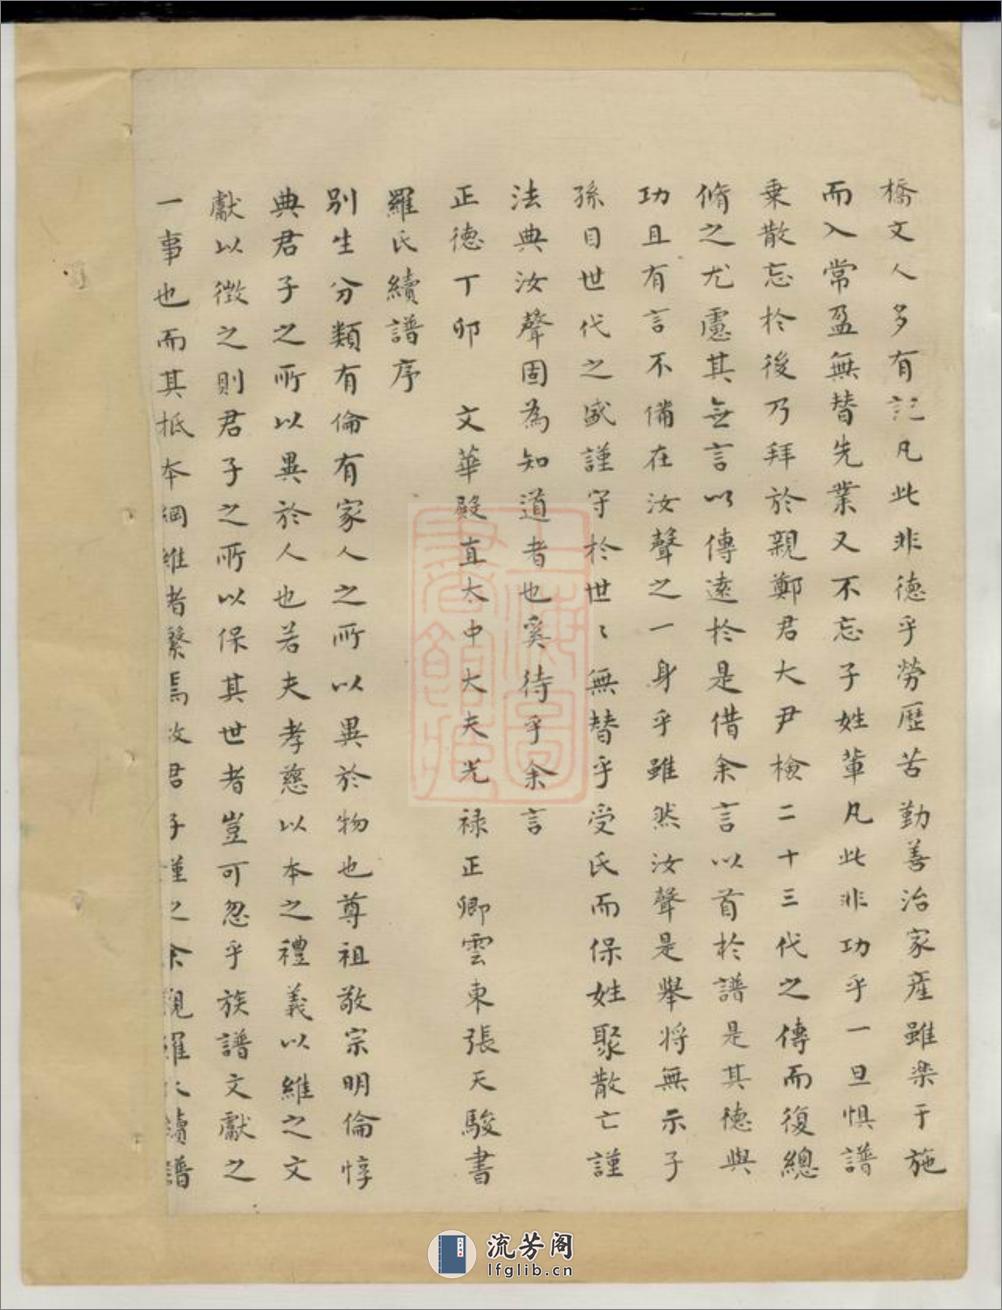 橋文人多有記凡此非德乎勞歷苦勤善治家産雖楽于施
而入常盈無替先業又不忘子姓輩凡此非功乎一旦惧譜
乗散忘於後乃拜於親鄭君大尹檢二十三代之傳而復總
脩之尤慮其無言以傳遠於是借余言以首於譜是其德與
功且有言不備在汝聲之一身乎雖然汝聲是舉将無示子
孫目世代之盛謹守於世〻無替乎受氏而保姓聚散亡謹
法典汝聲固為知道者也奚待乎余言
正德丁卯 文華殿直太中大夫光禄正卿雲東張天駿書
羅氏續譜序
別生分類有倫有家人之所以異於物也尊祖敬宗明倫惇
典君子之所以異於人也若夫孝慈以本之禮義以維之文
獻以徴之則君子之所以保其世者豈可忽乎族譜文獻之
一事也而其柢本綱維者繫焉故君子謹之余觀羅氏續譜
上海圖書館藏
流芳阁
lfglib.cn